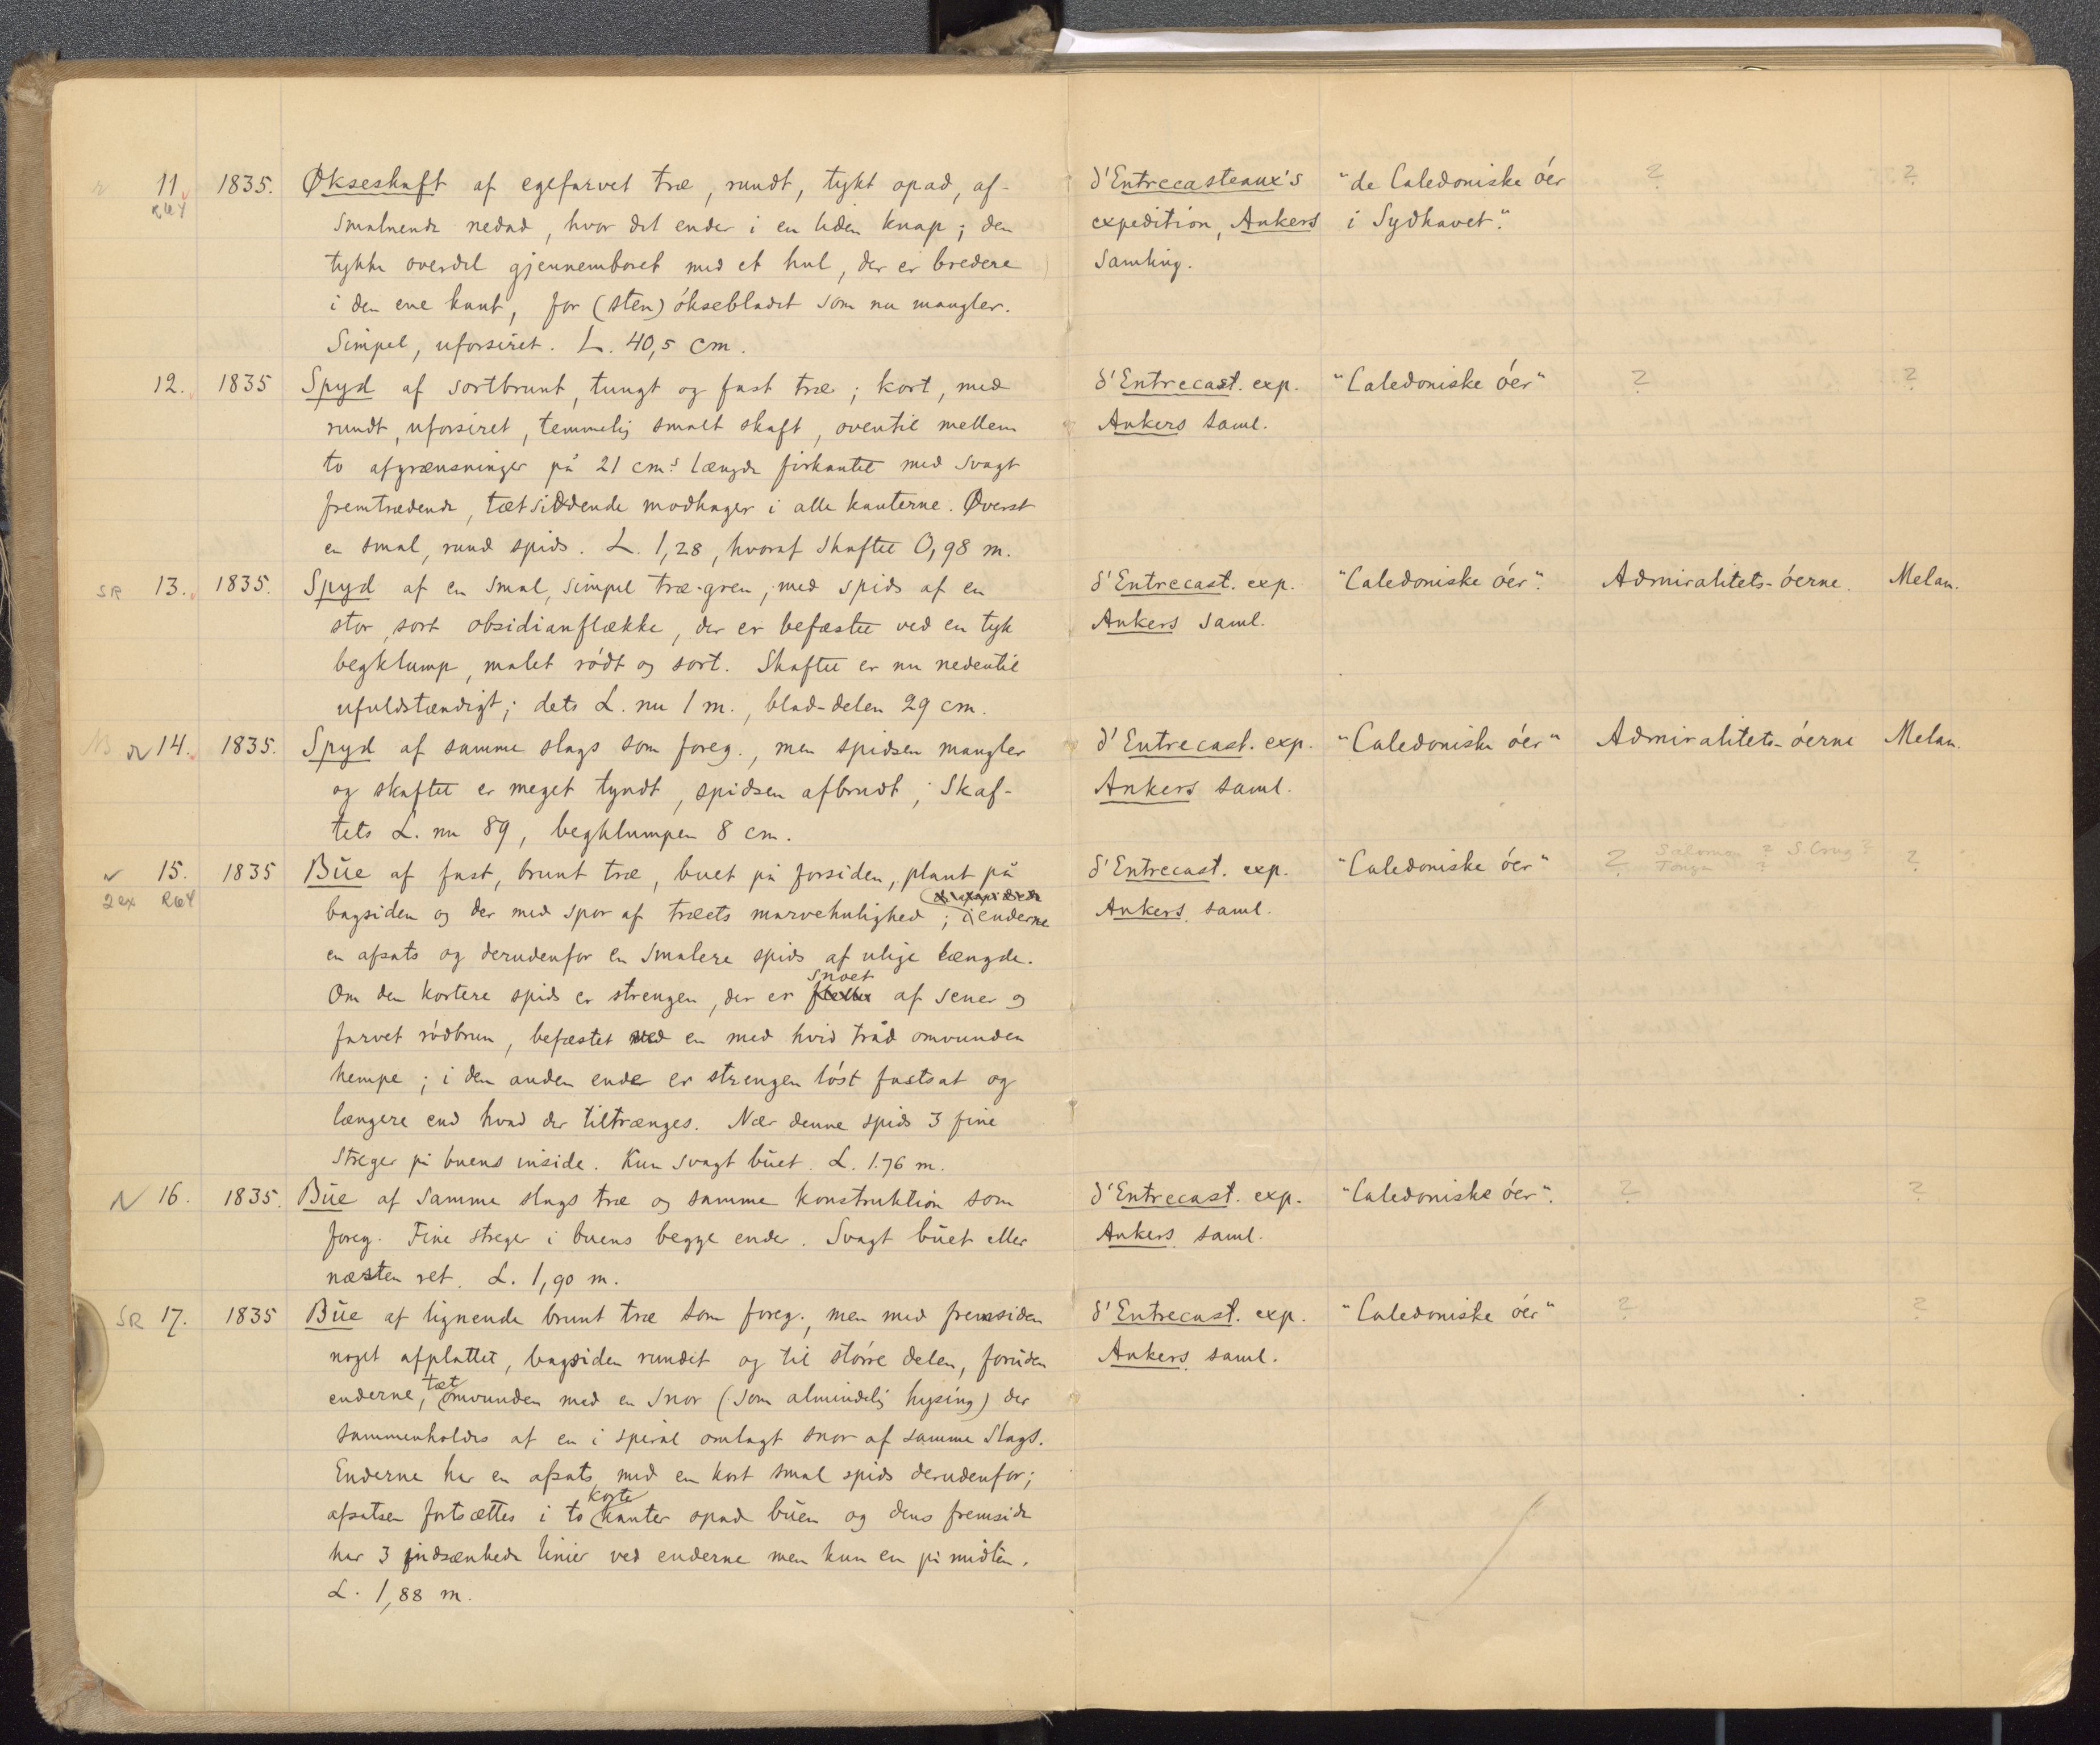 11. 1835. Økseskaft af egefarvet træ, rundt, tykt opad, af-
R64
smalnende nedad, hvor det ender i en liden knap; den
tykke overdel gjennemboret med et hul, der er bredere
i den ene kant, for (sten) óksebladet som nu mangler.
Simpel, uforsiret. L. 40,5 cm.
d'Entrecasteaux's
expedition, Ankers
Samling.
"de Caledoniske óer
i Sydhavet."
? ?
12. 1835 Spyd af sortbrunt, tungt og fast træ; kort, med
rundt, uforsiret, temmelig smalt skaft, oventil mellem
to afgrænsninger på 21 cms længde firkantet med svagt
fremtrædende, tætsiddende modhager i alle kanterne. Øverst
en smal, rund spids. L. 1,28, hvoraf skaftet 0,98 m.
d'Entrecast. exp.
Ankers saml.
"Caledoniske óer"
? ?
SR 13. 1835. Spyd af en smal, simpel træ-gren, med spids af en
stor, sort obsidianflække, der er befæstet ved en tyk
begklump, malet ródt og sort. Skaftet er nu nedentil
ufuldstændigt; dets L. nu 1 m., blad-delen 29 cm.
d'Entrecast. exp.
Ankers saml.
"Caledoniske óer".
Admiralitets-óerne. Melan.
14. 1835. Spyd af samme slags som foreg., men spidsen mangler
og skaftet er meget tyndt, spidsen afbrudt; Skaf-
tets L. nu 89, begklumpen 8 cm.
d'Entrecast. exp.
Ankers saml.
"Caledoniske óer"
Admiralitets-óerne Melan.
15. 1835 Bŭe af fast, brunt træ, buet på forsiden, plant på
2 ex R64
bagsiden og der med spor af træets marvehulighed; i enderne
en afsats og derudenfor en smalere spids af ulige længde.
snoet
Om den kortere spids er strengen, der er af sener og
farvet ródbrun, befæstet med en med hvid tråd omvunden
hempe; i den anden ende er strengen lóst fastsat og
længere end hvad der tiltrænges. Nær denne spids 3 fine
streger på buens inside. Kun svagt bŭet. L. 1.76 m.
d'Entrecast. exp.
Ankers saml.
"Caledoniske óer"
? Salomon ? S. Cruz ? ?
Tonga ?
16. 1835. Bŭe af samme slags træ og samme konstruktion som
foreg. Fine streger i buens begge ender. Svagt bŭet eller
næsten ret. L. 1,90 m.
d'Entrecast. exp.
Ankers saml.
"Caledoniske óer".
? ?
SR 17. 1835 Bŭe af lignende brunt træ som foreg., men med fremsiden
noget afplattet, bagsiden rundet og til stórre delen, forŭden
tæt
enderne, omvunden med en snor (som almindelig hysing) der
sammenholdes af en i spiral omlagt snor af samme slags.
Enderne har en afsats med en kort smal spids derudenfor;
korte
afsatsen fortsættes i to kanter opad bŭen og dens fremside
har 3 indsænkede linier ved enderne men kun en på midten.
L. 1,88 m.
d'Entrecast. exp.
Ankers saml.
"Caledoniske óer"
? ?